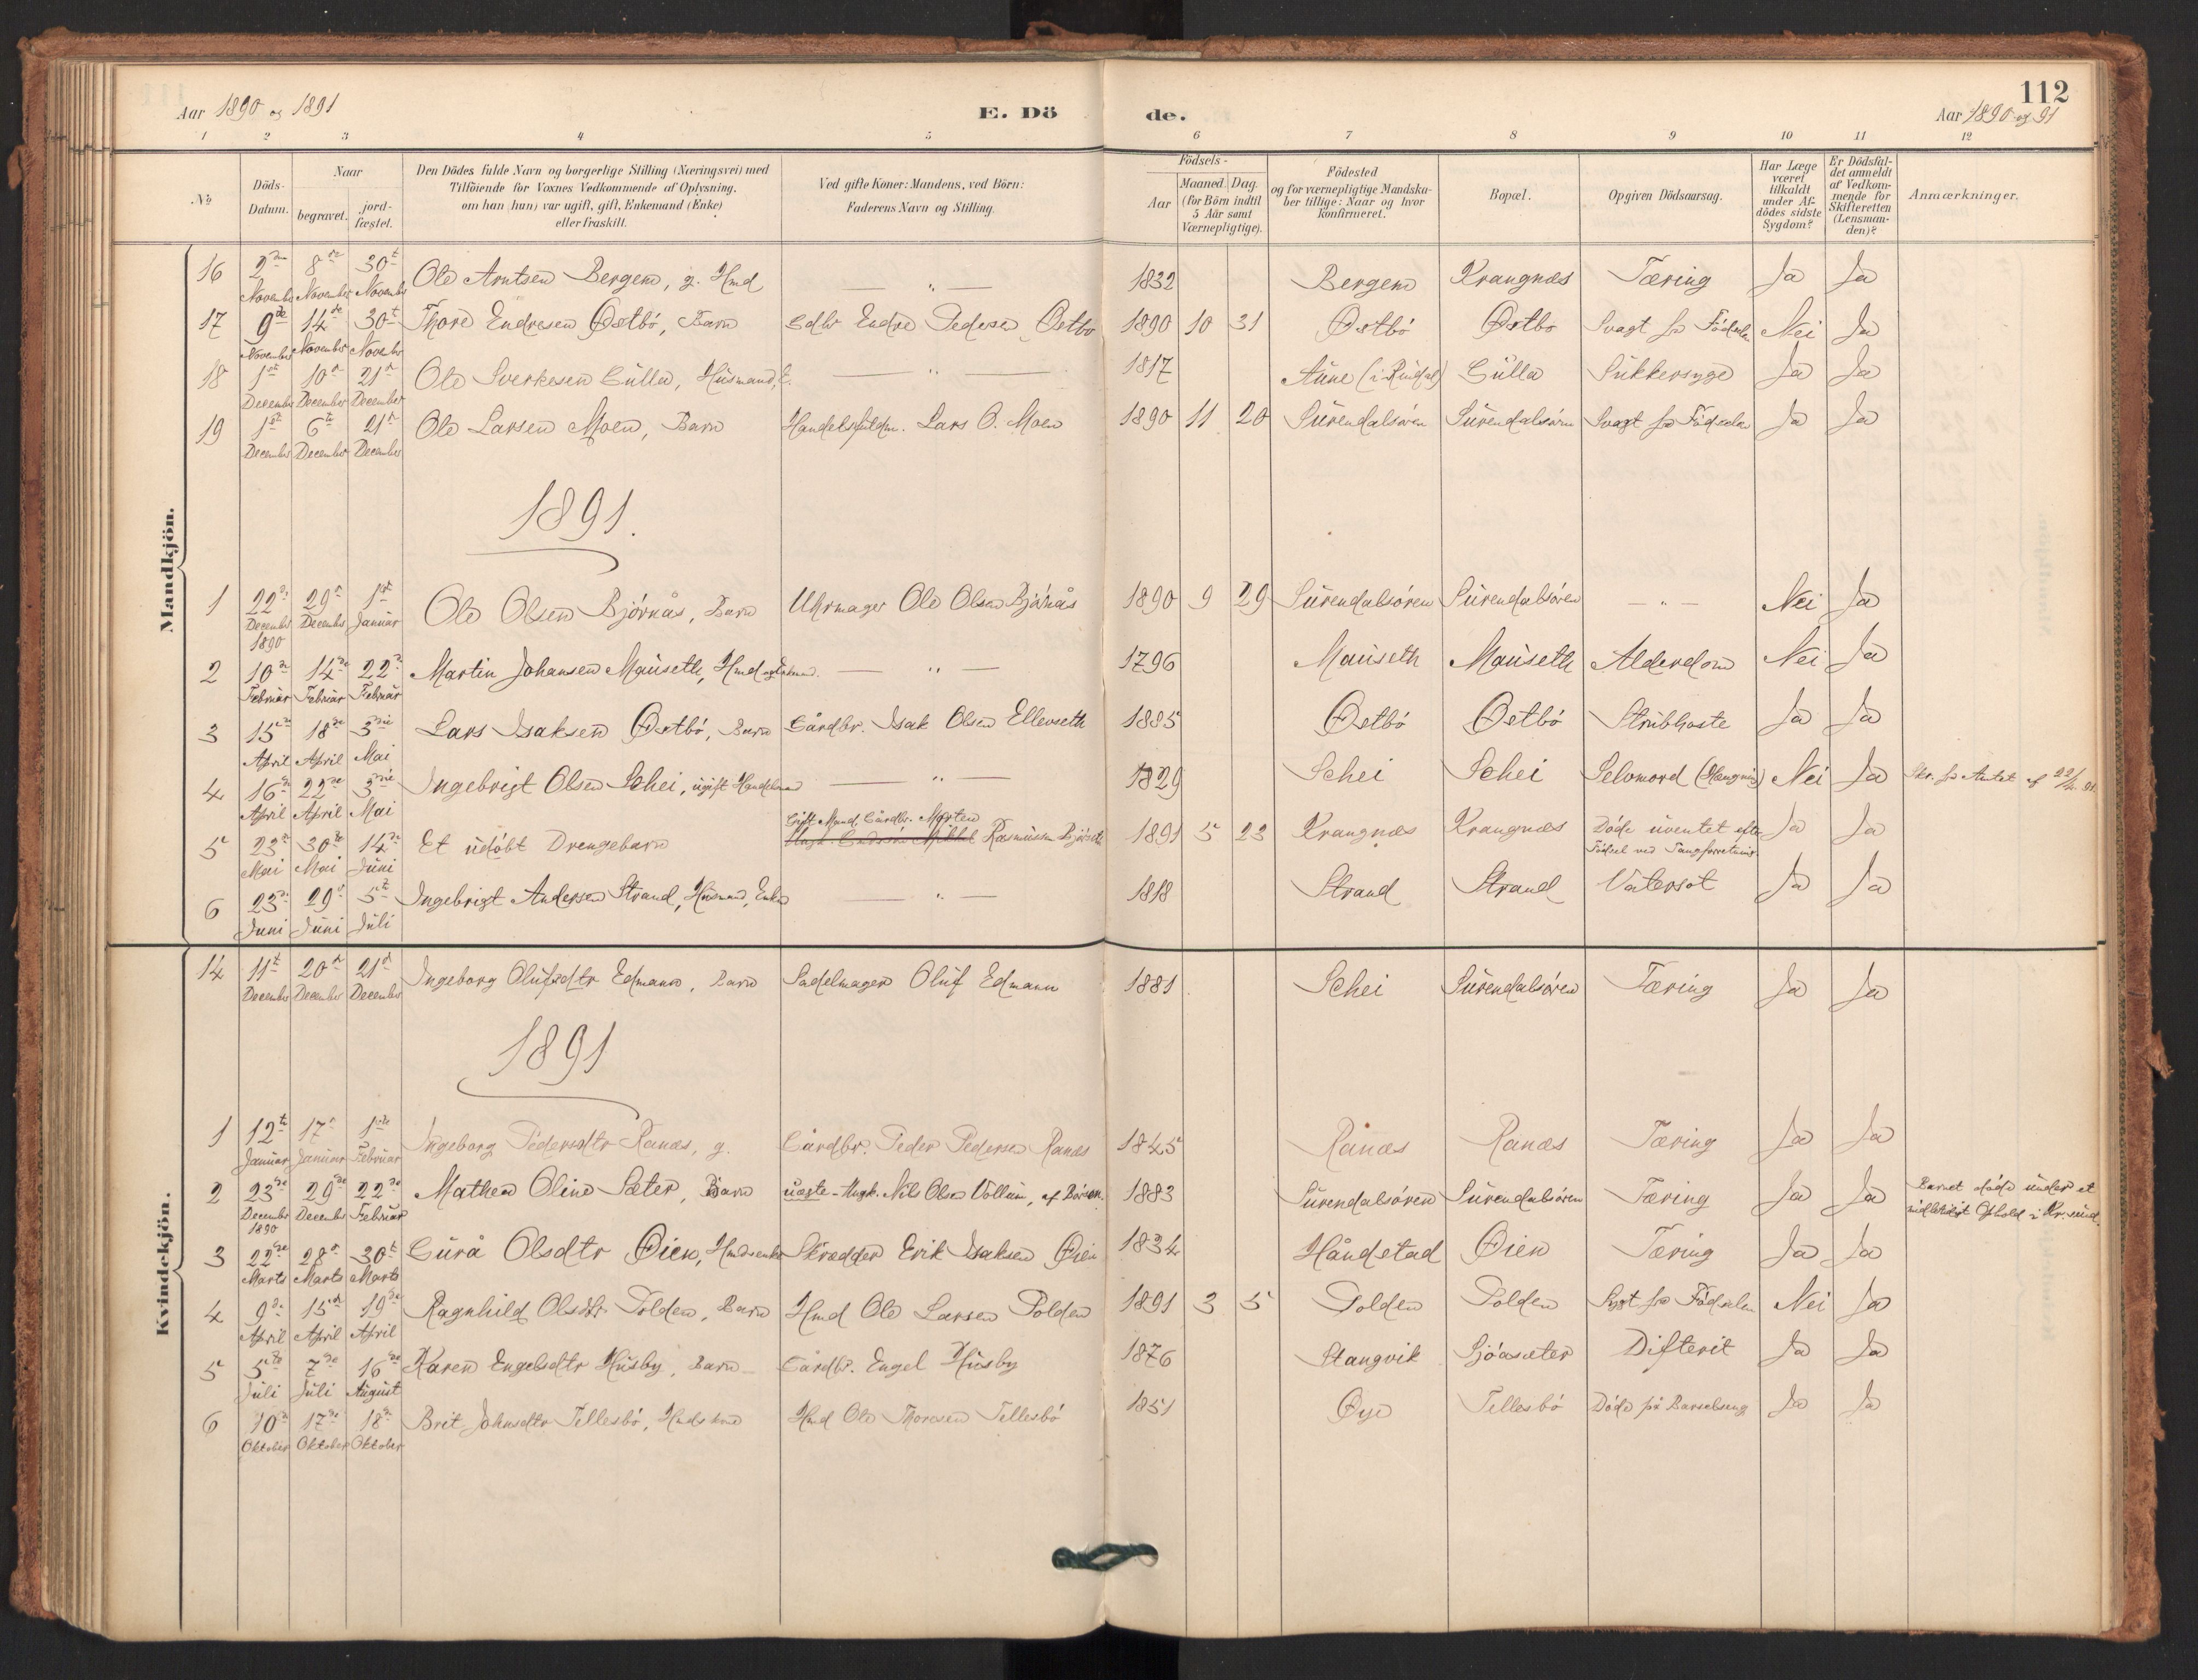 112
Aar 1890 og 1891 E. Dö de. Aar 1890 og 91
1 2 3 4 5 6 7 8 9 10 11 12
№ Döds-Datum. Naar begravet. jord-fæstet. Den Dödes fulde Navn og borgerlige Stilling (Næringsvei) med Tilföiende for Voxnes Vedkommende af Oplysning. om han (hun) var ugift, gift, Enkemand (Enke) eller fraskilt. Ved gifte Koner: Mandens, ved Börn: Faderens Navn og Stilling. Födsels- Aar Maaned. Dag. (for Börn indtil 5 Aar samt Værnepligtige). Födested og for værnepligtige Mandskaber tillige: Naar og hvor konfirmeret. Bopæl. Opgiven Dödsaarsag. Har Læge været tilkaldt under Afdödes sidste Sygdom? Er Dödsfaldet anmeldt af Vedkommende for Skifteretten (Lensmanden)? Anmærkninger.
Mandkjön.
16 2den November 8de November 30te November Ole Arntsen Bergem, g. Hmd — " — 1832 Bergem Krangnæs Tæring Ja Ja
17 9de November 14de November 30te Novembr Thore Endresen Østbö, Barn Gdbr Endre Pedersen Østbö 1890 10 31 Østbö Østbö Svagt fra Födselen Nei Ja
18 1ste December 10de December 21de December Ole Sverkesen Gulla, Husmand, E. — " — 1817 Aune (i Rindal) Gulla Sukkersyge Ja Ja
19 1ste December 6te December 21de December Ole Larsen Moen, Barn Handelsfuldm. Lars O. Moen 1890 11 20 Surendalsøren Surendalsøren Svagt fra Födselen Ja Ja
1891.
1 22de December 1890 29de December 1ste Januar Ole Olsen Bjørnås, Barn Uhrmager Ole Olsen Bjørnås 1890 9 29 Surendalsøren Surendalsøren — " — Nei Ja
2 10de Februar 14de Februar 22de Februar Martin Johansen Mauseth, Hmd og Enkemd. — " — 1796 Mauseth Mauseth Alderdom Nei Ja
3 15de April 18de April 3die Mai Lars Isaksen Østbö, Barn Gårdbr. Isak Olsen Ellevseth 1885 Østbö Østbö Strubhoste Ja Ja
4 16de April 22de April 3die Mai Ingebrigt Olsen Schei, ugift Handelsmand — " — 1829 Schei Schei Selvmord (Hængning) Nei Ja Skr. fra Amtet af 22/4 91.
5 23de Mai 30te Mai 14de Juni Et udøbt Drengebarn Gift Mand. Gårdbr. Morten Rasmussen Bjørseth 1891 5 23 Krangnæs Krangnæs Døde uventet efter Födsel ved Tangforretning Ja Ja
6 23de Juni 29de Juni 5te Juli Ingebrigt Andersen Strand, Husmand, Enkmd — " — 1818 Strand Strand Vatersot Ja Ja
Kvindekjön.
14 11te December 20de December 21de December Ingeborg Olufsdtr Edmann, Barn Sadelmager Oluf Edmann 1881 Schei Surendalsøren Tæring Ja Ja
1891
1 12te Januar 17de Januar 1ste Februar Ingeborg Pedersdtr Ranæs, g. Gårdbr. Peder Pedersen Ranæs 1845 Ranæs Ranæs Tæring Ja Ja
2 23de December 1890 29de 22de Februar Mathea Oline Sæter, Barn uægte - Ungk. Nils Olsen Vollum, af Börsen 1883 Surendalsøren Surendalsøren Tæring Ja Ja Barnet døde under et midlertidigt Ophold i Kr.sund.
3 22de Marts 28de Marts 30te Marts Gurå Olsdtr Øien, Hmdsenke Skrædder Erik Isaksen Øien 1834 Håndstad Øien Tæring Ja Ja
4 9de April 15de April 19de April Ragnhild Olsdtr. Polden, Barn Hmd Ole Larsen Polden 1891 3 5 Polden Polden Sygt fra Födselen Nei Ja
5 5te Juli 7de Juli 16de August Karen Engelsdtr Husby, Barn Gårdbr. Engel Husby 1876 Stangvik Sjøasæter Difterit Ja Ja
6 10de Oktober 17de Oktober 18de Oktober Brit Johnsdtr Tellesbö, Hmds kone Hmd Ole Thoresen Tellesbö 1851 Øye Tellesbö Døde på Barselseng Ja Ja